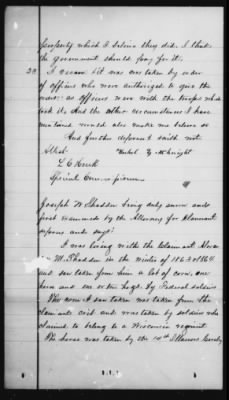 property which I believe they did. I think
the government should pay for it.
I reckon it was taken by order
of officers who were authorized to give the
order: as officers were with the troops who
took it. And the other circumstances I have
mentioned would also make me believe so
And further deponent saith not.
Attest.
L C Houk
Special Commissioner
Joseph W Shadden being duly sworn and
first examined by the Attorney for Claimant
deposes and says:
I was living with the Claimant
M. Shadden in the winter of 1863 & 1864
and saw taken from him a lot of corn, one
horse and one or two hogs by Federal soldiers
The corn I saw taken was taken from the
Claimants crib and was taken by soldiers who
claimed to belong to a Wisconsin regiment
The horse was taken by the Illinois Cavalry